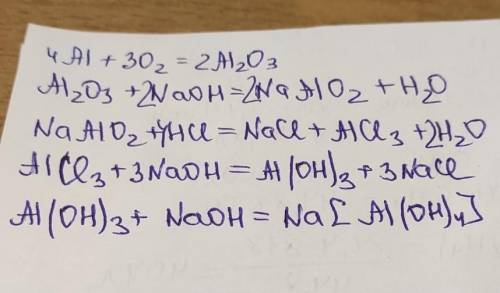 4Al + 3O₂ = 2Al₂O₃
Al₂O₃ + 2NaOH = 2NaAlO₂ + H₂O
NaAlO₂ + 4HCl = NaCl + AlCl₃ + 2H₂O
AlCl₃ + 3NaOH = Al(OH)₃ + 3NaCl
Al(OH)₃ + NaOH = Na[Al(OH)₄]